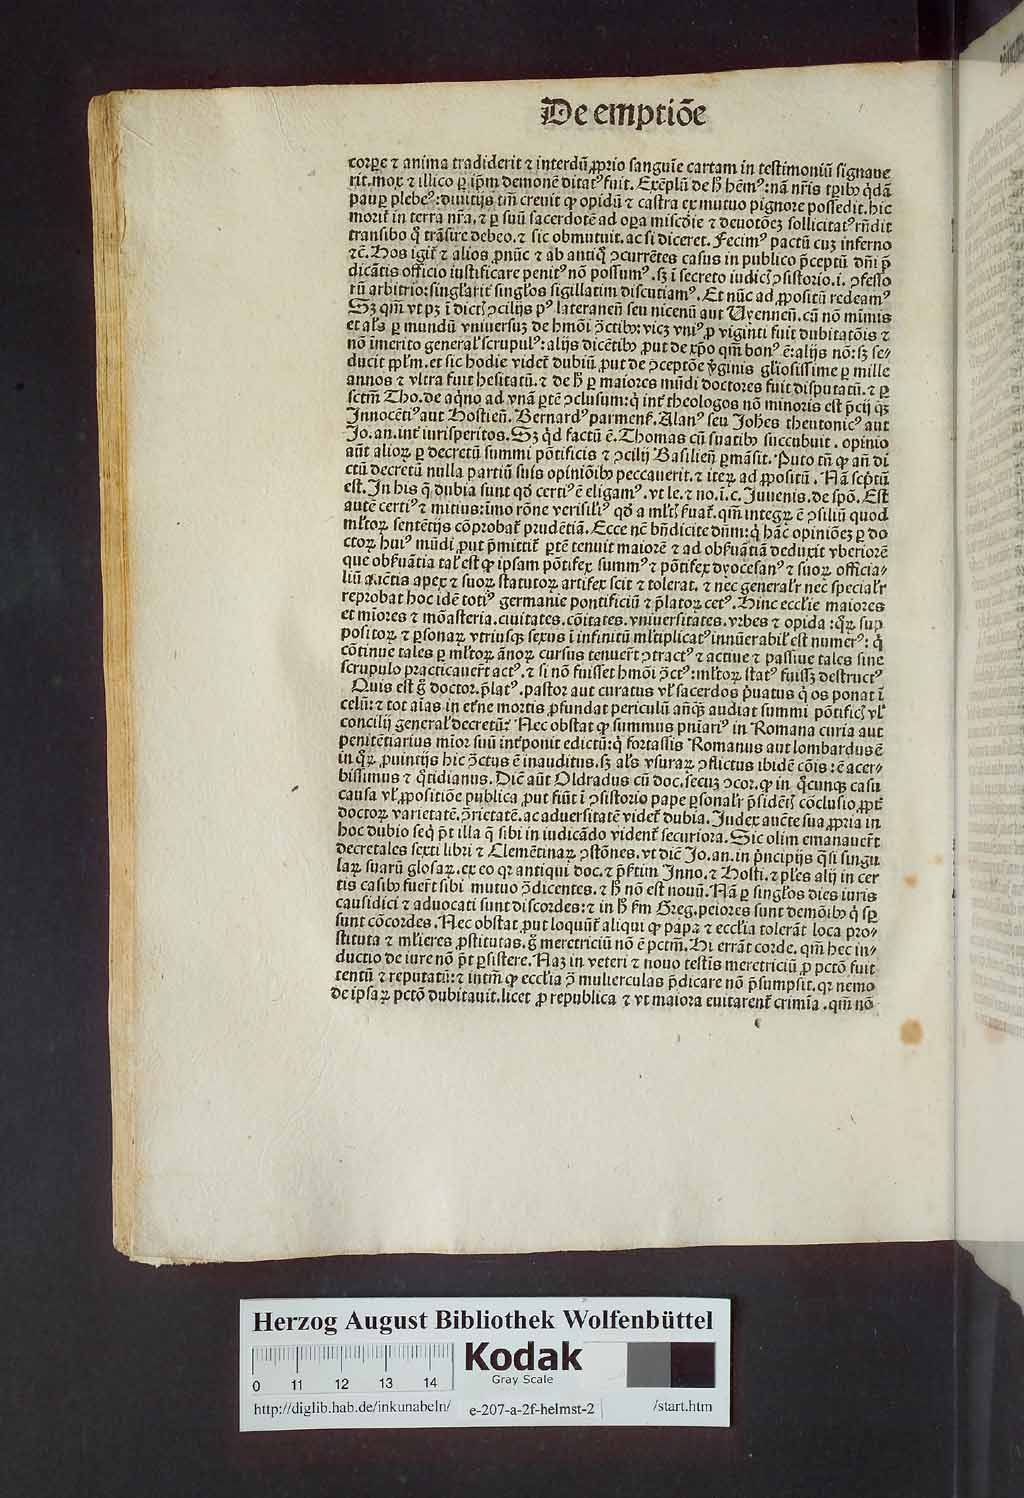 De emptiōe
corꝑe ⁊ anima tradiderit ⁊ interdū ꝓprio sanguīe cartam in testimoniū signaue
rit.mox ⁊ illico ꝑ ip̄m demonē ditatꝰ fuit. Exēplū de hͦ hēmꝰ: nā nr̄is tp̄ibꝫ qͥdā
paup̄ plebeꝰ: diuitijs tm̄ creuit ꝙ opidū ⁊ castra ex mutuo pignore possedit.hic
morit̄ in terra nr̄a, ⁊ ꝑ suū sacerdotē ad oꝑa mīscd̄ie ⁊ deuotōeꝫ sollicitatꝰ rn̄dit
transibo qͦ trāsire debeo.⁊ sic obmutuit.ac si diceret. Fecimꝰ pactū cuꝫ inferno
⁊c̄. Hos igit̄ ⁊ alios ꝓnūc ⁊ ab antiqͦ ↄcurrētes casus in publico p̄ceptū dn̄i p̄
dicātis officio iustificare penitꝰ nō possumꝰ.sꝫ ī secreto iudicꝭ ↄsistorio.i. ↄfesso
rū arbitrio: singl̄arit̄ singl̄os sigillatim discutiamꝰ. Et nūc ad ꝓpositū redeamꝰ
Sꝫ qm̄ vt pꝫ ī dictꝭ ↄcilijs pꝰ lateranen̄ seu nicenū aut Uyennen̄. cū nō minus
et al̄s ꝑ mundū vniuersuꝫ de hmōi ↄ̄ctibꝫ: vicꝫ vniꝰ ꝓ viginti fuit dubitatōis ⁊
nō īmerito general̄ scrupulꝰ: alijs dicētibꝫ ꝓut de xp̄o qm̄ bonꝰ ē: alijs nō: sꝫ se⸗
ducit ppl̄m. et sic hodie videt̄ dubiū ꝓut de ↄceptōe v̄ginis gl̄iosissime ꝑ mille
annos ⁊ vltra fuit hesitatū.⁊ de hͦ ꝑ maiores mūdi doctores fuit disputatū.⁊ ꝑ
sctm̄ Tho.de aqͥno ad vnā ꝑtē ↄclusum: qͥ int̄ theologos nō minoris est p̄cij qͣꝫ
Innocētiꝰ aut Hostien̄. Bernardꝰ parmens̄. Alanꝰ seu Joh̄es theutonicꝰ aut
Jo.an.int̄ iurisperitos. Sꝫ qͥd factū ē. Thomas cū suatibꝫ succubuit. opinio
aūt alioꝝ ꝑ decretū summi pōtificis ⁊ ↄcilij Basilien̄ ꝑmāsit. Puto tn̄ ꝙ an̄ di
ctū decretū nulla partiū suis opiniōibꝫ peccauerit.⁊ iteꝝ ad ꝓpositū. Nā scp̄tū
est. In his q̄ dubia sunt qd̄ certiꝰ ē eligamꝰ. vt le.⁊ no.ī.c. Juuenis.de spō. Est
autē certiꝰ ⁊ mitius: īmo rōne verisil̄iꝰ qd̄ a ml̄tꝭ s̄uat̄.qm̄ integꝝ ē ↄsiliū quod
ml̄toꝝ sentētijs cōprobat̄ prudētiā. Ecce nc̄ bn̄dicite dn̄m: qͥ hāc opiniōeꝫ ꝑ do
ctoꝝ huiꝰ mūdi ꝓut p̄mittit̄ ꝑtē tenuit maiorē ⁊ ad obs̄uātiā deduxit vberiorē
que obs̄uātia tal̄ est ꝙ ipsam pōtifex summꝰ ⁊ pōtifex dyocesanꝰ ⁊ suoꝝ officia⸗
liū aūctis apex ⁊ suoꝝ statutoꝝ artifex scit ⁊ tolerat. ⁊ nec general̄r nec special̄r
reprobat hoc idē totiꝰ germanie pontificiū ⁊ p̄latoꝝ cetꝰ. Hinc eccl̄ie maiores
et mīores ⁊ mōasteria. ciuitates. cōitates. vniuersitates. vrbes ⁊ opida: qͦꝝ sup
positoꝝ ⁊ ꝑsonaꝝ vtriusqꝫ sexus ī infinitū ml̄tiplicatꝰ innūerabil̄ est numerꝰ: qͥ
cōtinue tales ꝑ ml̄toꝝ ānoꝝ cursus tenuer̄t ↄtractꝰ ⁊ actiue ⁊ passiue tales sine
scrupulo practicauer̄t actꝰ.⁊ si nō fuisset hmōi ↄ̄ctꝰ: ml̄toꝝ statꝰ fuissꝫ destructꝰ
Quis est gͦ doctor.p̄latꝰ.pastor aut curatus vl̄ sacerdos p̄uatus qͥ os ponat ī
celū: ⁊ tot aīas in et̄ne mortis ꝓfundat periculū anq̄ꝫ audiat summi pōtificꝭ vl̄
concilij general̄ decretū? Nec obstat ꝙ summus pn̄iariꝰ in Romana curia aut
penitētiarius mīor suū int̄ponit edictū: qͥ fortassis Romanus aut lombardus ē
in qͦꝝ ꝓuintijs hic ↄ̄ctus ē inauditus.sꝫ al̄s vsuraꝝ ↄflictus ibidē cōis: ē acer⸗
bissimus ⁊ qͦtidianus. Dic̄ aūt Oldradus cū doc.secuꝫ ↄcor.ꝙ in qͦcunqꝫ casu
causa vl̄ ꝓpositiōe publica ꝓut fiūt ī ↄsistorio pape ꝑsonal̄r p̄sidētꝭ cōclusio.ꝓpt̄
doctoꝝ varietatē.ↄ̄rietatē.ac aduersitatē videt̄ dubia. Judex aucte sua ꝓpria in
hoc dubio seqͥ p̄t illa q̄ sibi in iudicādo vident̄ securiora. Sic olim emanauer̄t
decretales sexti libri ⁊ Clemētinaꝝ ↄstōnes. vt dic̄ Jo.an.in p̄ncipijs qͣsi singu
laꝝ suarū glosaꝝ.ex eo qꝛ antiqui doc.⁊ p̄s̄tim Inno.⁊ Hosti.⁊ pl̄es alij in cer
tis casibꝫ fuer̄t sibi mutuo ↄ̄dicentes.⁊ hͦ nō est nouū. Nā ꝑ singl̄os dies iuris
causidici ⁊ aduocati sunt discordes: ⁊ in hͦ s̄m Greg.peiores sunt demōibꝫ qͥ sꝑ
sunt cōcordes. Nec obstat ꝓut loquūt̄ aliqui ꝙ papa ⁊ eccl̄ia tolerāt loca pro⸗
stituta ⁊ ml̄ieres ꝓstitutas.gͦ meretriciū nō ē pctm̄. Hi errāt corde. qm̄ hec in⸗
ductio de iure nō p̄t ꝑsistere. Naꝫ in veteri ⁊ nouo testis meretriciū ꝓ pctō fuit
tentū ⁊ reputatū: ⁊ intm̄ ꝙ eccl̄ia ↄ̄ mulierculas p̄dicare nō p̄sumpsit.qꝛ nemo
de ipsaꝝ pctō dubitauit.licet ꝓ republica ⁊ vt maiora euitarent̄ crimīa.qm̄ nō
Herzog August Bibliothek Wolfenbüttel
Kodak
Gray Scale
0 11 12 13 14
http://diglib.hab.de/inkunabeln/ e-207-a-2f-helmst-2 /start.htm